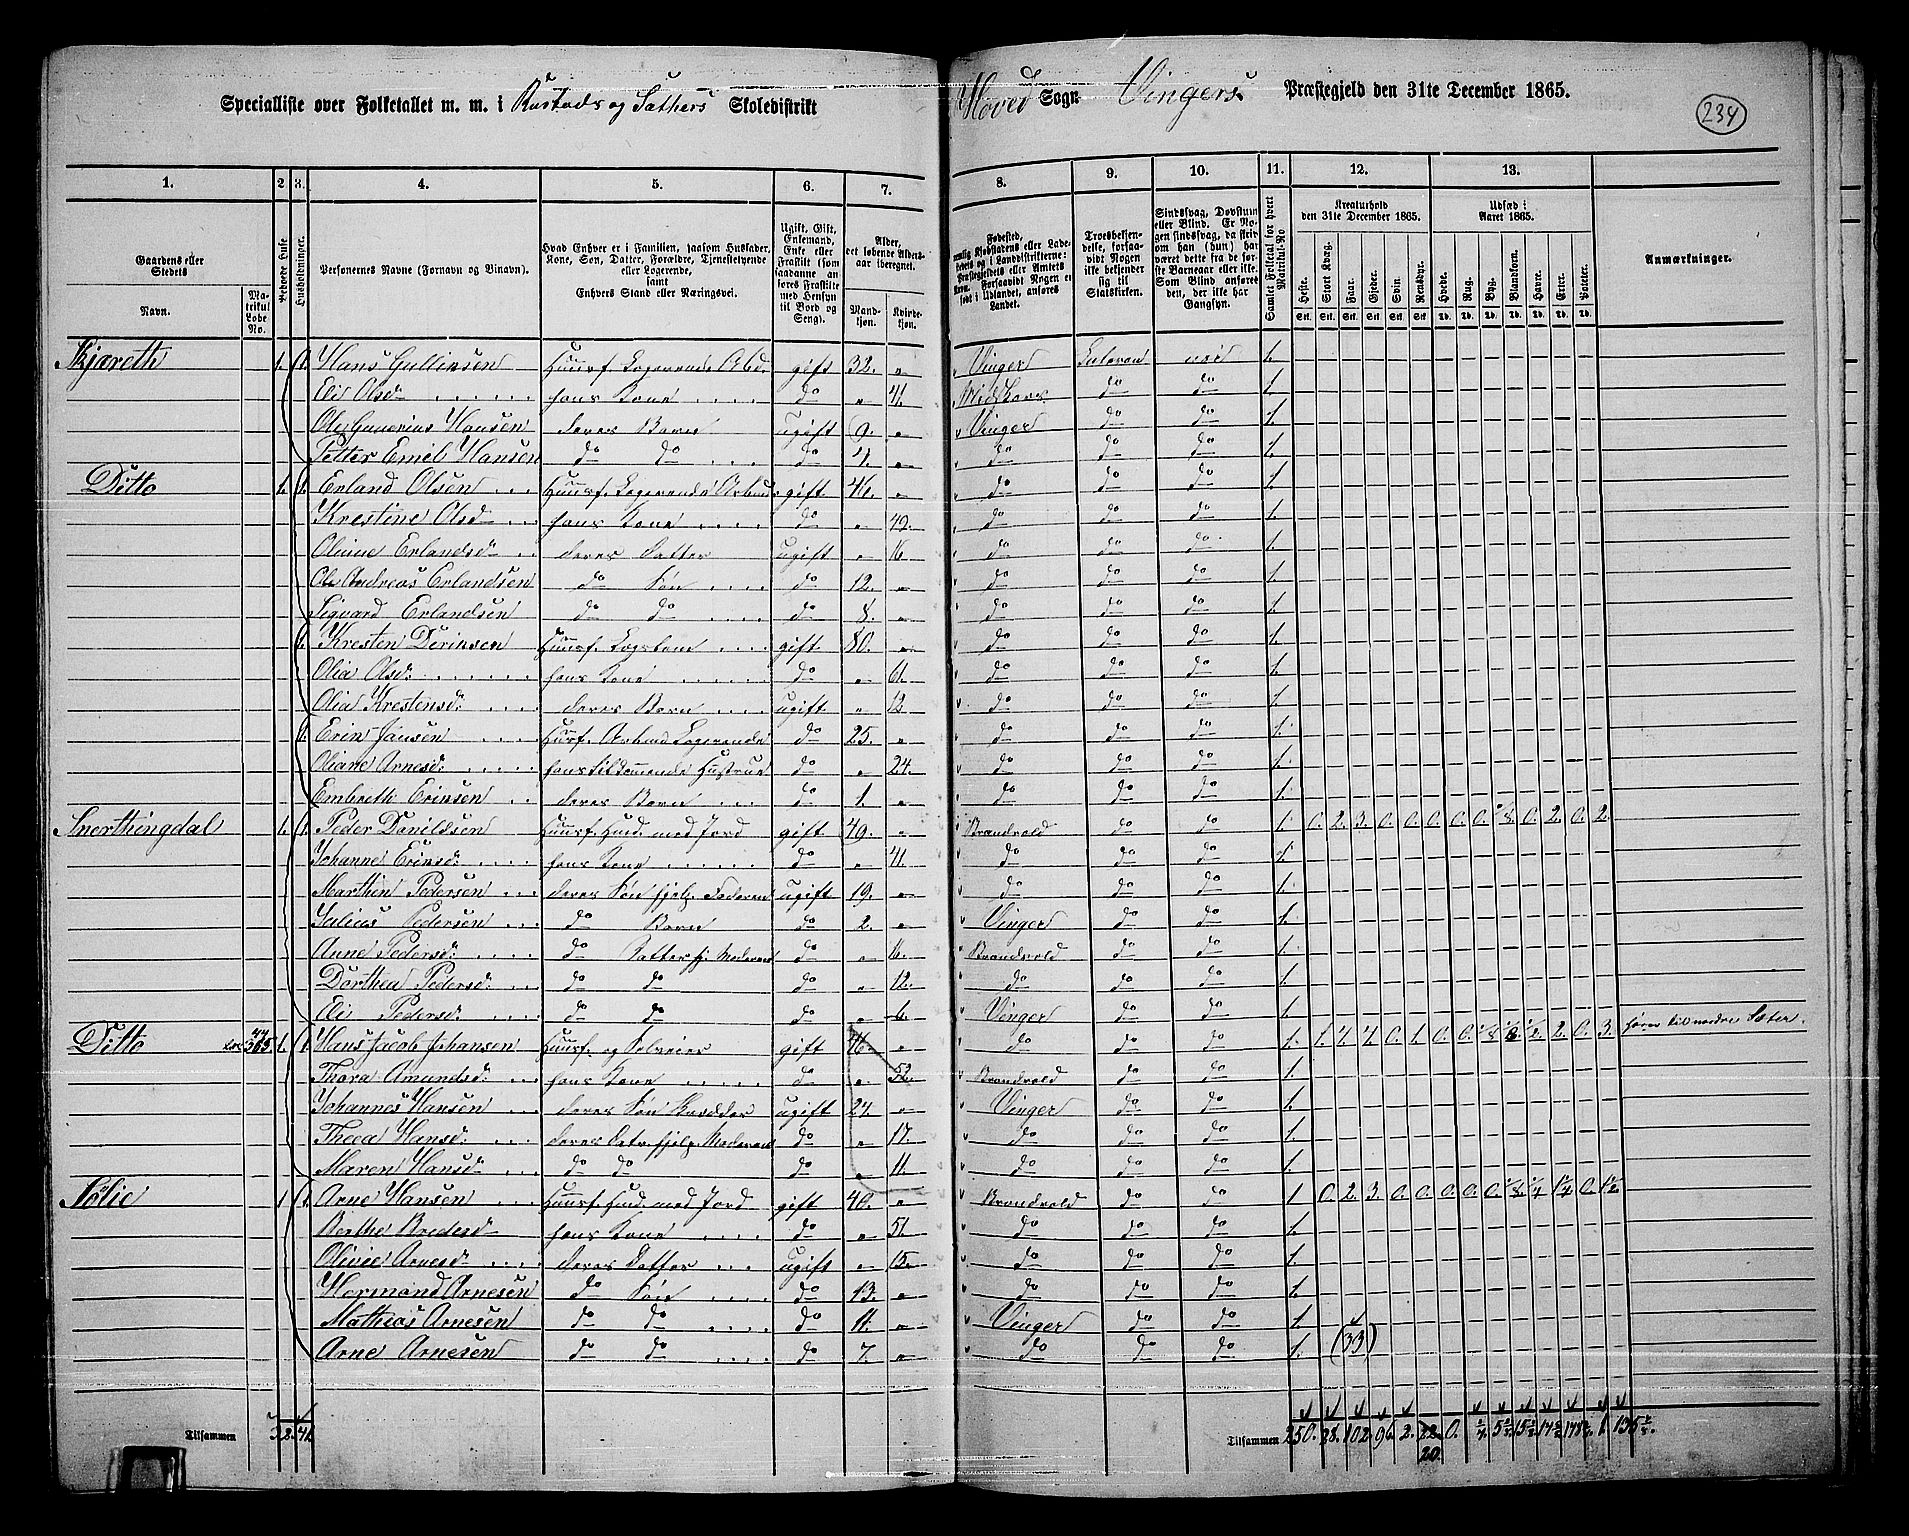 Specialliste over Folketallet m. m. i Rustads og Sæthers Skoledistrikt Hoved Sogn Vingers Præstegjeld den 31te December 1865.
234
1. 2. 3. 4. 5. 6. 7. 8. 9. 10. 11. 12. 13.
Gaardens eller Stedets
Navn.
Matrikul Løbe No.
Beboede Huse
Husholdninger.
Personernes Navne (Fornavn og Tilnavn).
Hvad Enhver er i Familien, saasom Husfader, Kone, Søn, Datter, Forældre, Tjenestetyende eller Logerende, samt Enhvers Stand eller Næringsvei.
Ugift, Gift, Enkemand, Enke eller Fraskilt (som saadanne anføres Fraskilte med Hensyn til Bord og Seng).
Alder, det løbende Aldersaar iberegnet.
Mandkjøn. Kvindekjøn.
Trosbekjendelse, forsaavidt Nogen ikke bekjender sig til Statskirken.
Samlet Folketal for hvert Matrikul-No
Kreaturhold den 31te December 1865.
Heste. Stort Kvæg. Faar. Gjeder. Svin. Rensdyr.
Udsæd i Aaret 1865.
Hvede. Rug. Byg. Blandkorn. Havre. Erter. Poteter.
Anmærkninger.
Kjæreth 1. 1. Hans Gullinsen Huusf. Logerende Arbd. gift 32. " Vinger Lutheran nei 1.
Eli Olsd: hans Kone do " 41. do do 1.
Ole Gunerius Hansen deres Barn ugift 9. " Vinger do do 1.
Petter Emil Hansen do do do 4. " do do do 1.
Ditto 1. 1. Erland Olsen Huusf. Logerende Arbeid gift 46. " do do do 1.
Krestine Olsd hans Kone do " 49. do do do 1.
Oline Erlandsd: deres Datter ugift " 16 do do do 1.
Ole Andreas Erlandsen do Søn do 12. " do do do 1.
Sigvard Erlandsen do do do 8. " do do do 1.
1. Kresten Perinsen Huusf. gift 80. " do do do 1.
Olia Olsd: hans Kone do " 61. do do do 1.
Olia Krestensd: deres Barn ugift " 12 do do do 1.
1. Erin Jansen Husf. Arbeid Logerende do 25. " do do do 1.
Oliane Arnesd: hans tilkommende Hustrue do " 24. do do do 1.
Embreth Erinsen deres Barn do 1. " do do do 1.
Snerthingdal 1. 1. Peder Danildsen Huusf. Husd. med Jord gift 49. " Brandvold do do 1. 0. 2. 3. 0. 0. 0. 0. 0. 0. 2. 0. 2.
Johanne Erinsd: hans Kone do " 41. do do do 1.
Marthin Pedersen deres Søn hjelp. Faderen ugift 19. " do do do 1.
Julius Pedersen do Barn do 2. " Vinger do do 1.
Anne Pedersd: do Datter hj. Moderen do " 16. Brandvold do do 1.
Dorthea Pedersd: do do do " 12. do do do 1.
Eli Pedersd: do do do " 6. Vinger do do 1.
Ditto 1. 1. Hans Jacob Johansen Huusf. og Selveier gift 46. " do do do 1. 1. 4. 4. 0. 1. 0. 0. 2. 0. 3. hører til nordre Sæter.
Thora Amundsd: hans Kone do " 52. Brandvold do do 1.
Johannes Hansen deres Søn Skrædder ugift 24. " Vinger do do 1.
Thea Hansd: deres Datr. hjelp. Moderen do " 17. do do do 1.
Maren Hansd: do do do " 11. do do do 1.
Nølie 1 1. Arne Hansen Huusf. Husd. med Jord gift 40. " Brandvold do do 1 0. 2. 3. 0. 0. 0. 0. 0. 1/8 1/4 1 1/4 0. 1 1/2
Berthe Bredesd: hans Kone do " 51. do do do 1.
Olivie Arnesd: deres Datter ugift " 15. do do do 1.
Hermand Arnesen do Søn do 13. " do do do 1.
Mathias Arnesen do do do 11. " Vinger do do 1.
Arne Arnesen do do do 7. " do do do 1. (33)
Tilsammen 32. 41. Tilsammen 250. 28. 102. 96. 2. 22. 0.
20.